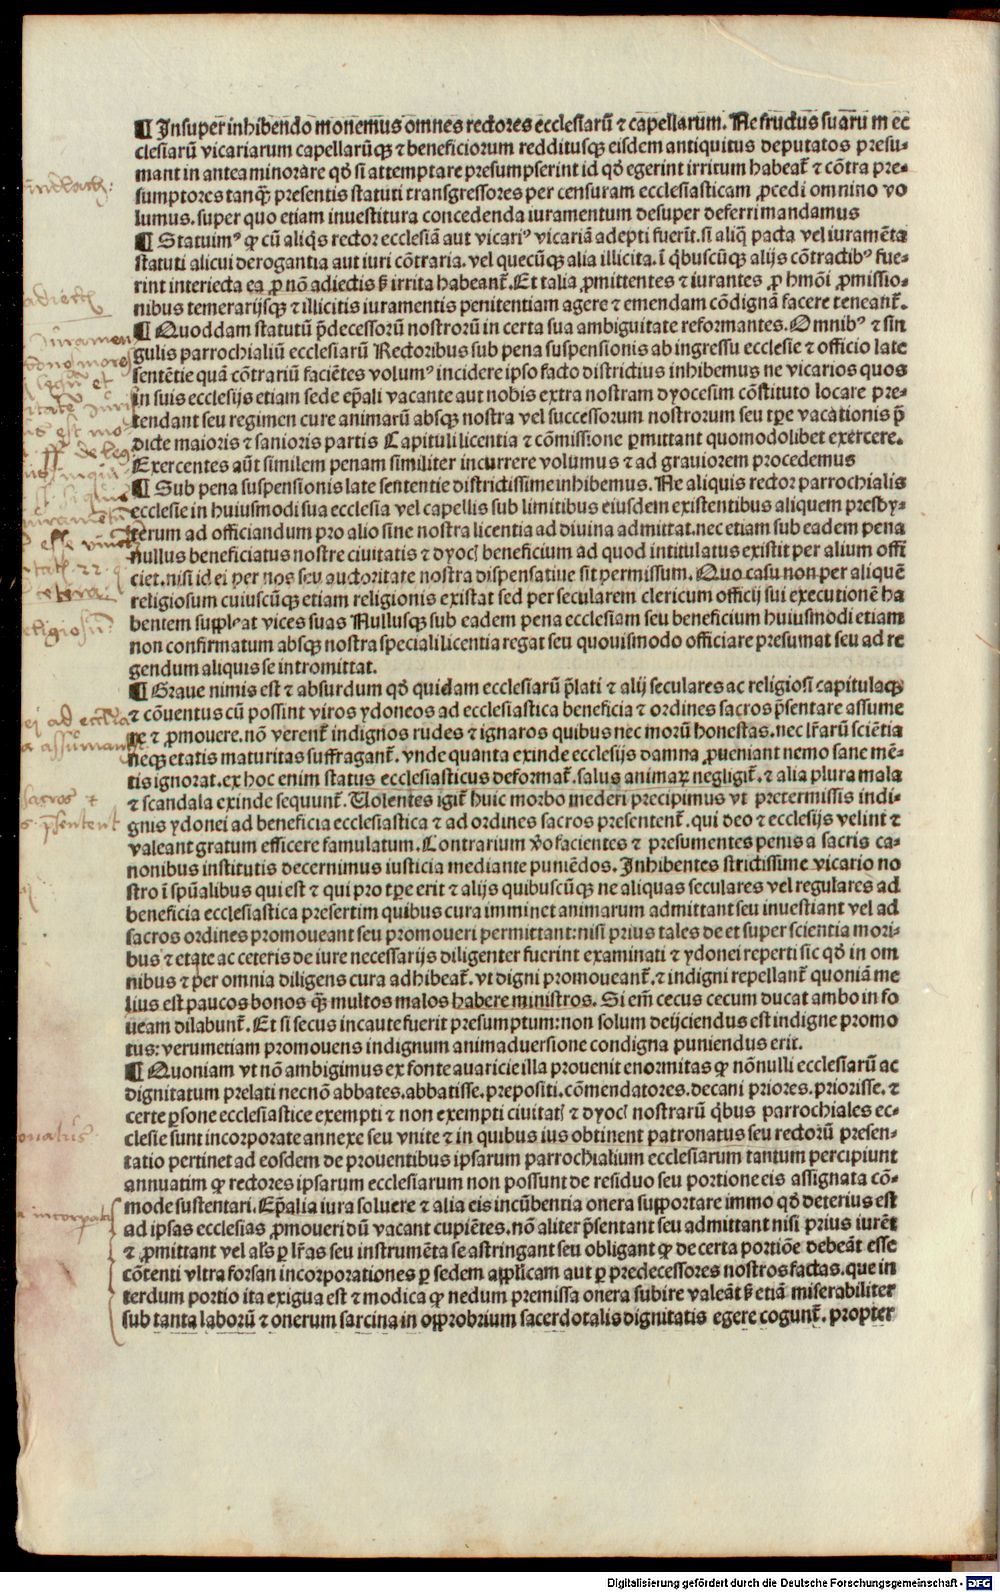 ¶ Insuper inhibendo monemus omnes rectores ecclesiarū ⁊ capellarum. Ne fructus suarū in ec
clesiarū vicariarum capellarūqȝ ⁊ beneficiorum redditusqȝ eisdem antiquitus deputatos presu-
mant in antea minorare qđ si attemptare presumpserint id qđ egerint irritum habeat᷑ ⁊ cōtra pre-
sumptores tanqȝ presentis statuti transgressores per censuram ecclesiasticam ꝓcedi omnino vo
lumus. super quo etiam inuestitura concedenda iuramentum desuper deferri mandamus
¶ Statuimꝰ ꝙ cū aliq̇s rector ecclesiā aut vicariꝰ vicariā adepti fuerīt. si aliq̄ pacta vel iuramēta
statuti alicui derogantia aut iuri cōtraria. vel quecūqȝ alia illicita. ī q̇buscūqȝ alijs cōtractibꝰ fue-
rint interiecta ea ꝓ nō adiectis ꝫ irrita habeant᷑. Et talia ꝓmittentes ⁊ iurantes ꝓ hmōi ꝓmissio-
nibus temerarijsqȝ ⁊ illicitis iuramentis penitentiam agere ⁊ emendam cōdignā facere teneant᷑.
¶ Quoddam statutū p̄decessorū nostrorū in certa sua ambiguitate reformantes. Omnibꝰ ⁊ sin
gulis parrochialiū ecclesiarū Rectoribus sub pena suspensionis ab ingressu ecclesie ⁊ officio late
sentētie quā cōtrariū faciētes volumꝰ incidere ipso facto districtius inhibemus ne vicarios quos
in suis ecclesijs etiam sede ep̄ali vacante aut nobis extra nostram dyocesim cōstituto locare pre-
tendant seu regimen cure animarū absqȝ nostra vel successorum nostrorum seu tp̄e vacationis p̄
dicte maioris ⁊ sanioris partis Capituli licentia ⁊ cōmissione ꝑmittant quomodolibet exercere.
Exercentes aūt similem penam similiter incurrere volumus ⁊ ad grauiorem procedemus
¶ Sub pena suspensionis late sententie districtissime inhibemus. Ne aliquis rector parrochialis
ecclesie in huiusmodi sua ecclesia vel capellis sub limitibus eiusdem existentibus aliquem presby-
terum ad officiandum pro alio sine nostra licentia ad diuina admittat. nec etiam sub eadem pena
nullus beneficiatus nostre ciuitatis ⁊ dyoc̄ beneficium ad quod intitulatus existit per alium offi
ciet. nisi id ei per nos seu auctoritate nostra dispensatiue sit permissum. Quo casu non per aliquē
religiosum cuiuscūqȝ etiam religionis existat sed per secularem clericum officij sui executionē ha
bentem suppleat vices suas Nullusqȝ sub eadem pena ecclesiam seu beneficium huiusmodi etiam
non confirmatum absqȝ nostra speciali licentia regat seu quouismodo officiare presumat seu ad re
gendum aliquis se intromittat.
¶ Graue nimis est ⁊ absurdum qđ quidam ecclesiarū p̄lati ⁊ alij seculares ac religiosi capitulaqȝ
⁊ cōuentus cū possint viros ydoneos ad ecclesiastica beneficia ⁊ ordines sacros p̄sentare assume
re ⁊ ꝓmouere. nō verent᷑ indignos rudes ⁊ ignaros quibus nec morū honestas. nec lr̄arū sciētia
neqȝ etatis maturitas suffragant᷑. vnde quanta exinde ecclesijs damna ꝓueniant nemo sane mē-
tis ignorat. ex hoc enim status ecclesiasticus deformat᷑. salus animaꝝ negligit᷑. ⁊ alia plura mala
⁊ scandala exinde sequunt᷑. Volentes igit᷑ huic morbo mederi precipimus vt pretermissis indi-
gnis ydonei ad beneficia ecclesiastica ⁊ ad ordines sacros presentent᷑. qui deo ⁊ ecclesijs velint ⁊
valeant gratum efficere famulatum. Contrarium v̄o facientes ⁊ presumentes penis a sacris ca-
nonibus institutis decernimus iusticia mediante puniēdos. Inhibentes strictissime vicario no
stro ī spūalibus qui est ⁊ qui pro tp̄e erit ⁊ alijs quibuscūqȝ ne aliquas seculares vel regulares ad
beneficia ecclesiastica presertim quibus cura imminet animarum admittant seu inuestiant vel ad
sacros ordines promoueant seu promoueri permittant: nisi prius tales de et super scientia mori-
bus ⁊ etate ac ceteris de iure necessarijs diligenter fuerint examinati ⁊ ydonei reperti sic qđ in om
nibus ⁊ per omnia diligens cura adhibeat᷑. vt digni promoueant᷑. ⁊ indigni repellant᷑ quoniā me
lius est paucos bonos qȝ multos malos habere ministros. Si em̄ cecus cecum ducat ambo in fo
ueam dilabunt᷑. Et si secus incaute fuerit presumptum: non solum deijciendus est indigne promo
tus: verumetiam promouens indignum animaduersione condigna puniendus erit.
¶ Quoniam vt nō ambigimus ex fonte auaricie illa prouenit enormitas ꝙ nōnulli ecclesiarū ac
dignitatum prelati necnō abbates. abbatisse. prepositi. cōmendatores. decani priores. priorisse. ⁊
certe ꝑsone ecclesiastice exempti ⁊ non exempti ciuitat̄ ⁊ dyoc̄ nostrarū q̇bus parrochiales ec-
clesie sunt incorporate annexe seu vnite ⁊ in quibus ius obtinent patronatus seu rectorū presen-
tatio pertinet ad eosdem de prouentibus ipsarum parrochialium ecclesiarum tantum percipiunt
annuatim ꝙ rectores ipsarum ecclesiarum non possunt de residuo seu portione eis assignata cō-
mode sustentari. Ep̄alia iura soluere ⁊ alia eis incūbentia onera supportare immo qđ deterius est
ad ipsas ecclesias ꝓmoueri dū vacant cupiētes. nō aliter p̄sentant seu admittant nisi prius iurēt
⁊ ꝓmittant vel al̄s ꝑ lr̄as seu instrumēta se astringant seu obligant ꝙ de certa portiōe debeāt esse
cōtenti vltra forsan incorporationes ꝑ sedem applicam aut ꝑ predecessores nostros factas. que in
terdum portio ita exigua est ⁊ modica ꝙ nedum premissa onera subire valeāt ꝫ etiā miserabiliter
sub tanta laborū ⁊ onerum sarcina in opprobrium sacerdotalis dignitatis egere cogunt᷑. propter
Digitalisierung gefördert durch die Deutsche Forschungsgemeinschaft - DFG